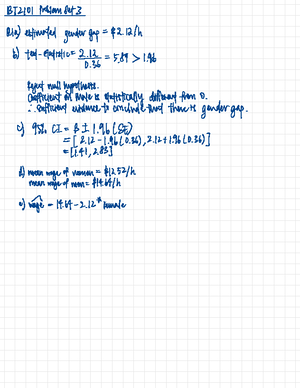 BT2101 Problem Set 3
Q1a) estimated gender gap = $2.12/h
b) test-statistic = 2.12/0.36 = 5.89 > 1.96
Reject null hypothesis.
Coefficient on Male is statistically different from 0.
∴ sufficient evidence to conclude that there is gender gap.
c) 95% CI = β ± 1.96 (SE)
= [2.12 - 1.96(0.36), 2.12 + 1.96(0.36)]
= [1.41, 2.83]
d) mean wage of women = $12.52/h
mean wage of men = $14.64/h
e) wage = 14.64 - 2.12 * Female